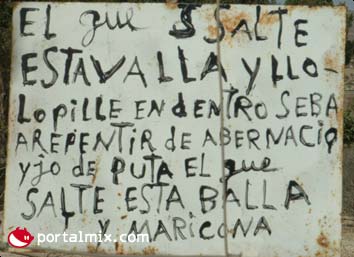 EL que SSALTE
ESTAVALLA Y LLO-
LO PILLE EN DENTRO SEBA
AREPENTIR de ABERNACIO
Y JO de PUTA EL que
SALTE ESTA BALLA
Y MARICONA
portalmix.com